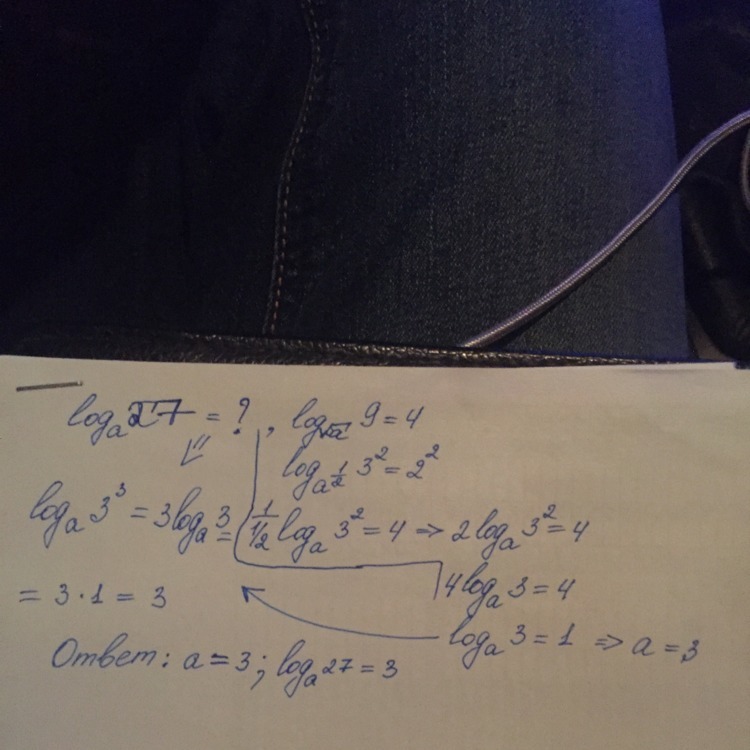 logₐ 27 = ?, log_√a 9 = 4
log_a^(1/2) 3² = 2²
logₐ 3³ = 3logₐ 3 =
1/(1/2) logₐ 3² = 4 ⇒ 2logₐ 3² = 4
4logₐ 3 = 4
= 3 · 1 = 3
logₐ 3 = 1 ⇒ a = 3
Ответ: a = 3; logₐ 27 = 3